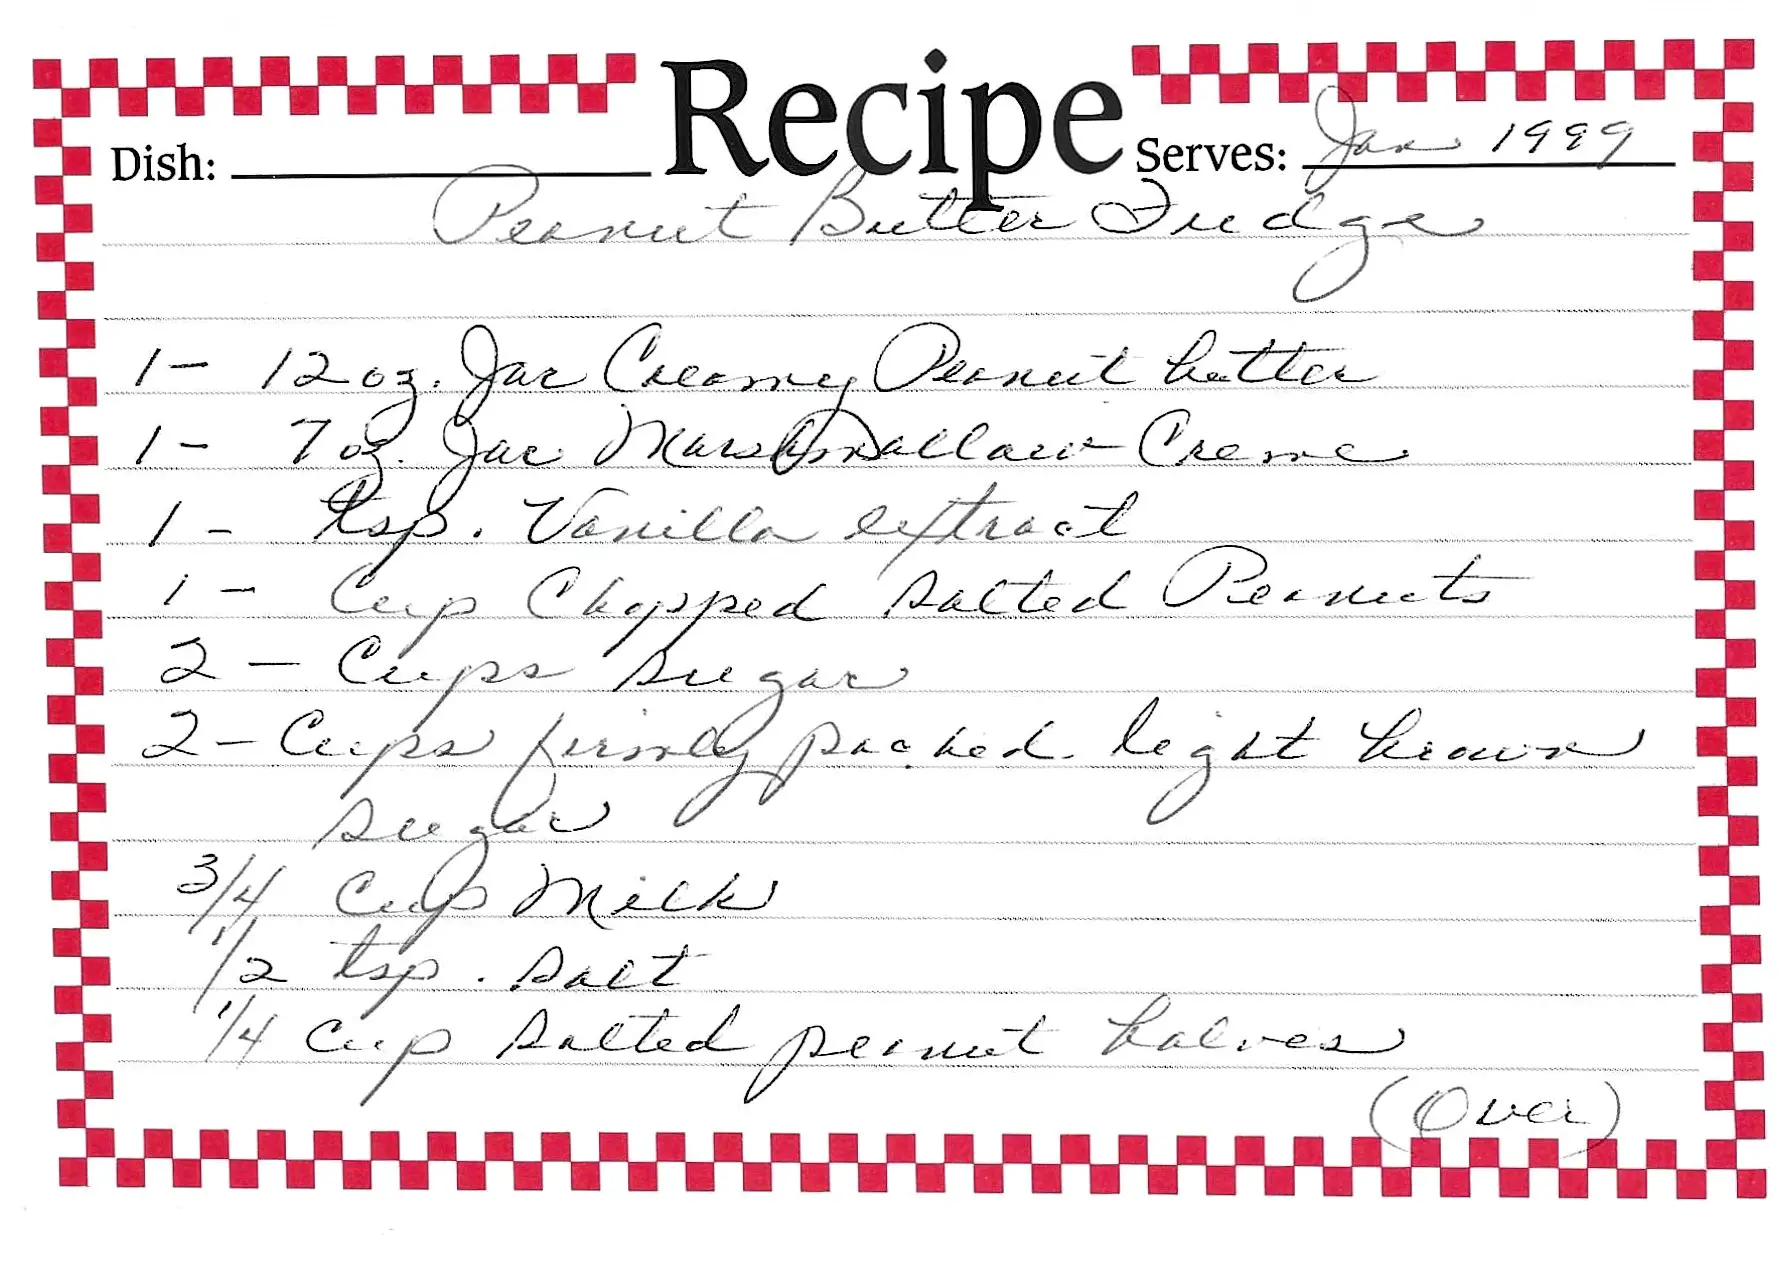 Recipe
Dish:
Serves: Jan 1999
Peanut Butter Fudge
1- 12 oz. Jar Creamy Peanut butter
1- 7 oz. Jar Marshmallow Creme
1- tsp. Vanilla extract
1- Cup Chopped salted Peanuts
2- Cups sugar
2- Cups firmly packed light brown
sugar
3/4 Cup Milk
1/2 tsp. salt
1/4 cup salted peanut halves
(Over)